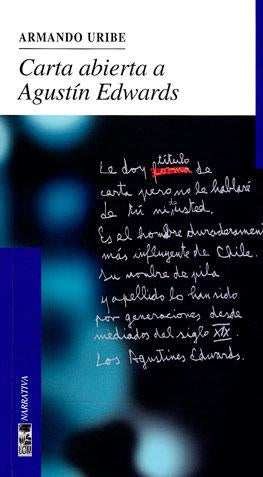 ARMANDO URIBE
Carta abierta a
Agustín Edwards
título
Le doy forma de
carta pero no le hablaré
de
de tú ni usted.
Es el hombre duraderamente
más influyente de Chile.
Su nombre de pila
y apellido lo han sido
por generaciones desde
mediados del siglo XIX.
Los Agustines Edwards.
NARRATIVA
LOM